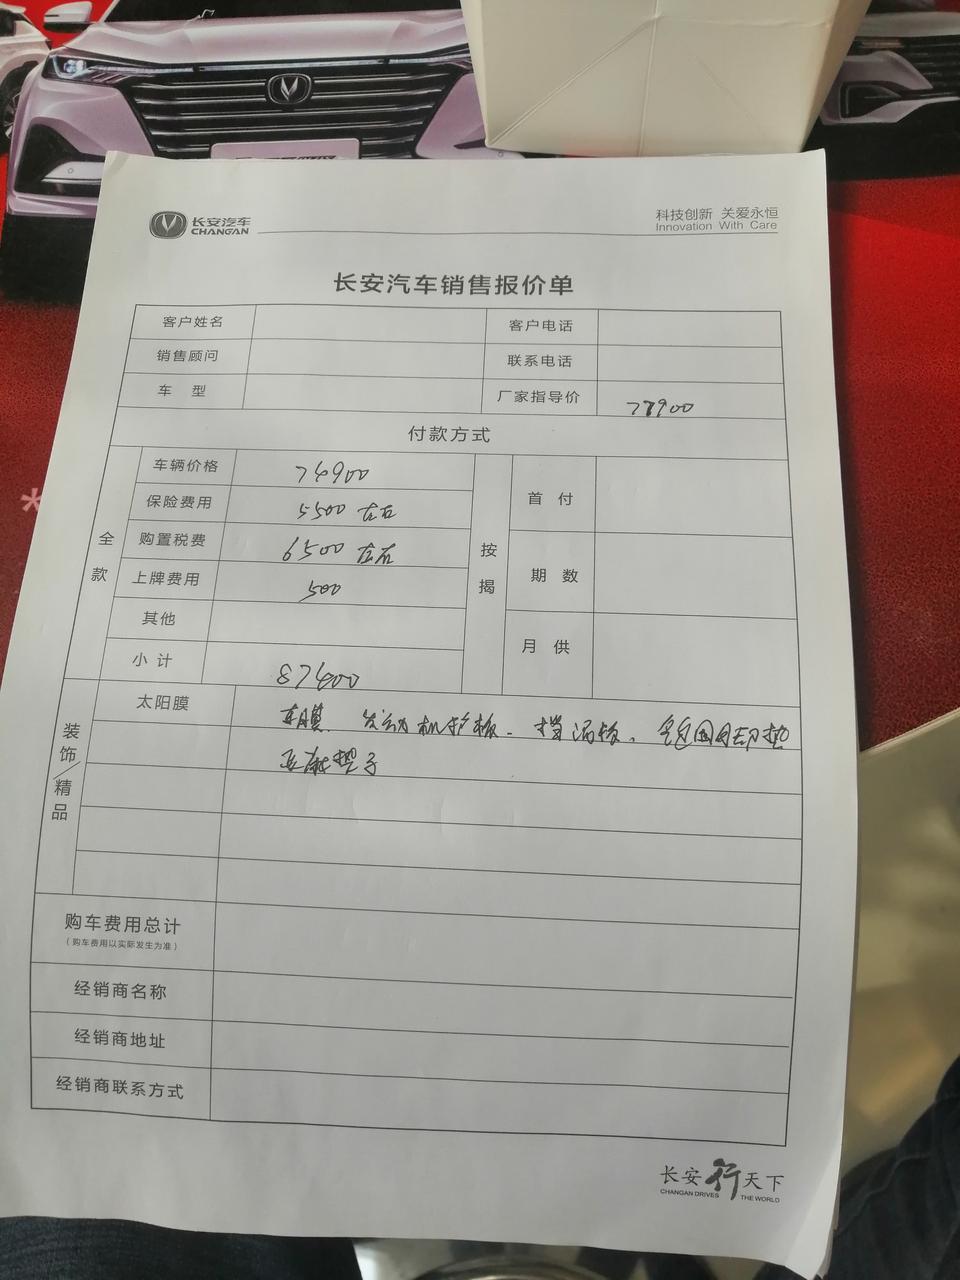 长安汽车
CHANGAN
科技创新 关爱永恒
Innovation With Care
长安汽车销售报价单
客户姓名 客户电话
销售顾问 联系电话
车 型 厂家指导价 77900
付款方式
全款
车辆价格 74900
保险费用 5500 左右
购置税费 6500 左右
上牌费用 500
其他
小计 87400
按揭
首 付
期 数
月 供
装饰/精品
太阳膜 车膜、发动机护板、挡泥板、全包围脚垫
后备垫子
购车费用总计
(购车费用以实际发生为准)
经销商名称
经销商地址
经销商联系方式
长安行天下
CHANGAN DRIVES THE WORLD